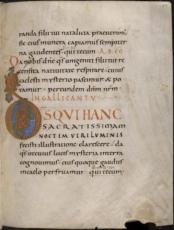 randa filii tui natalicia praeuenim
sic eius munera capiamus sempiter
na gaudentes. qui tecum
nobis dne qs unigeniti filii tui re
censita natiuitate respirare. cuius
caelesti mysterio pascimur & po
tamur. per eundem dnm nrm
IN GALLICANTU
DS QUI HANC
SACRATISSIMAM
NOCTEM UERI LUMINIS
fecisti illustratione clarescere. da
qs ut cuius lucis mysteria in terra
cognouimus. eius quoque gaudiis
in caelo perfruamur. qui tecum